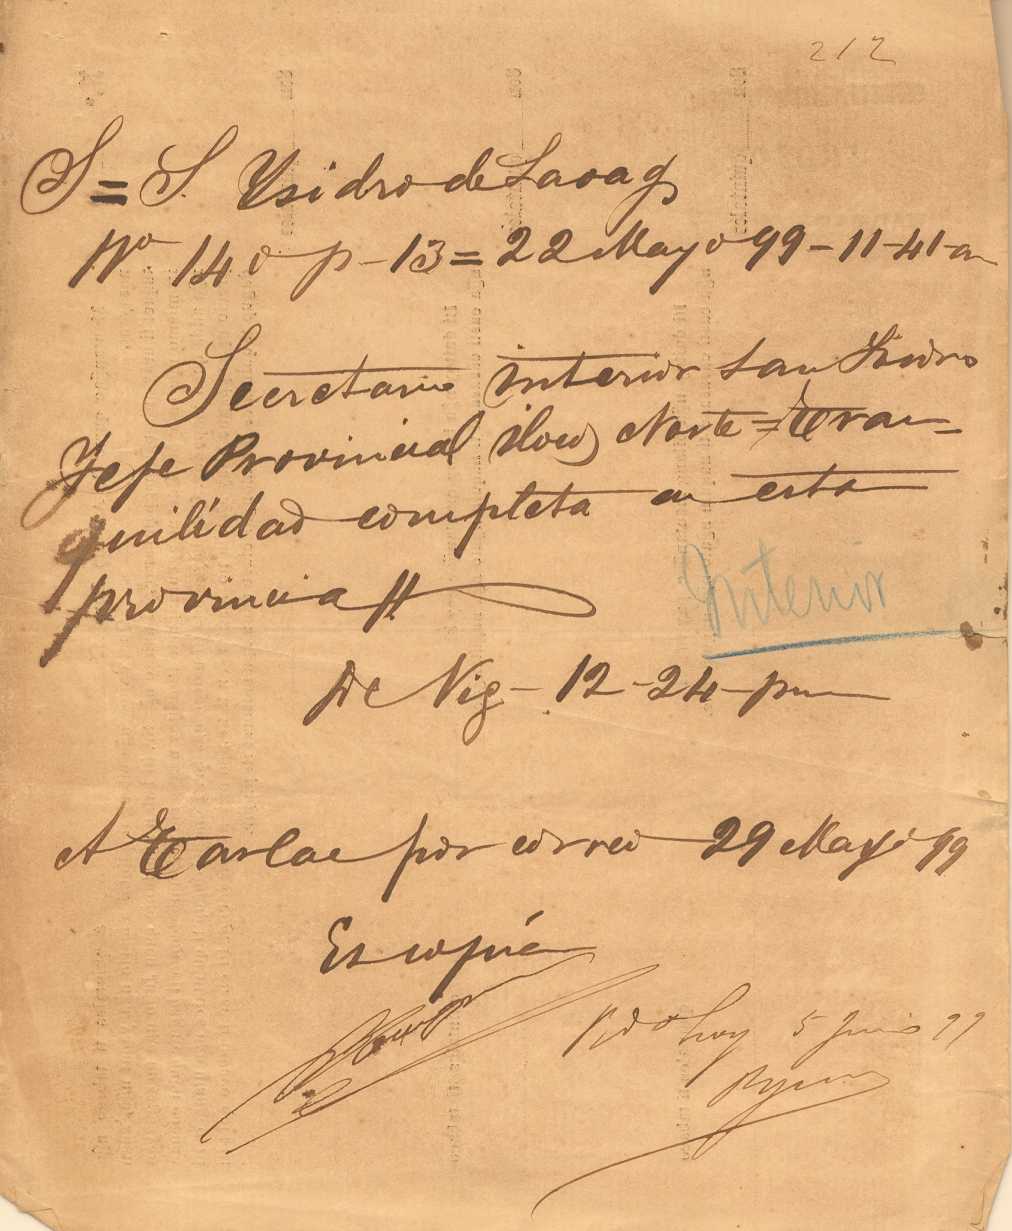 212
S = S. Ysidro de Laoag
No 14 o p - 13 = 22 Mayo 99 - 11-41-am
Secretario interior San Isidro
Jefe Provincial Ilocos Norte = Tran-
quilidad completa en esta
provincia //
Interior
De Vig - 12 - 24 - pm
A Tarlac por correo 29 Mayo 99
Es copia
Rdo hoy 5 Junio 99